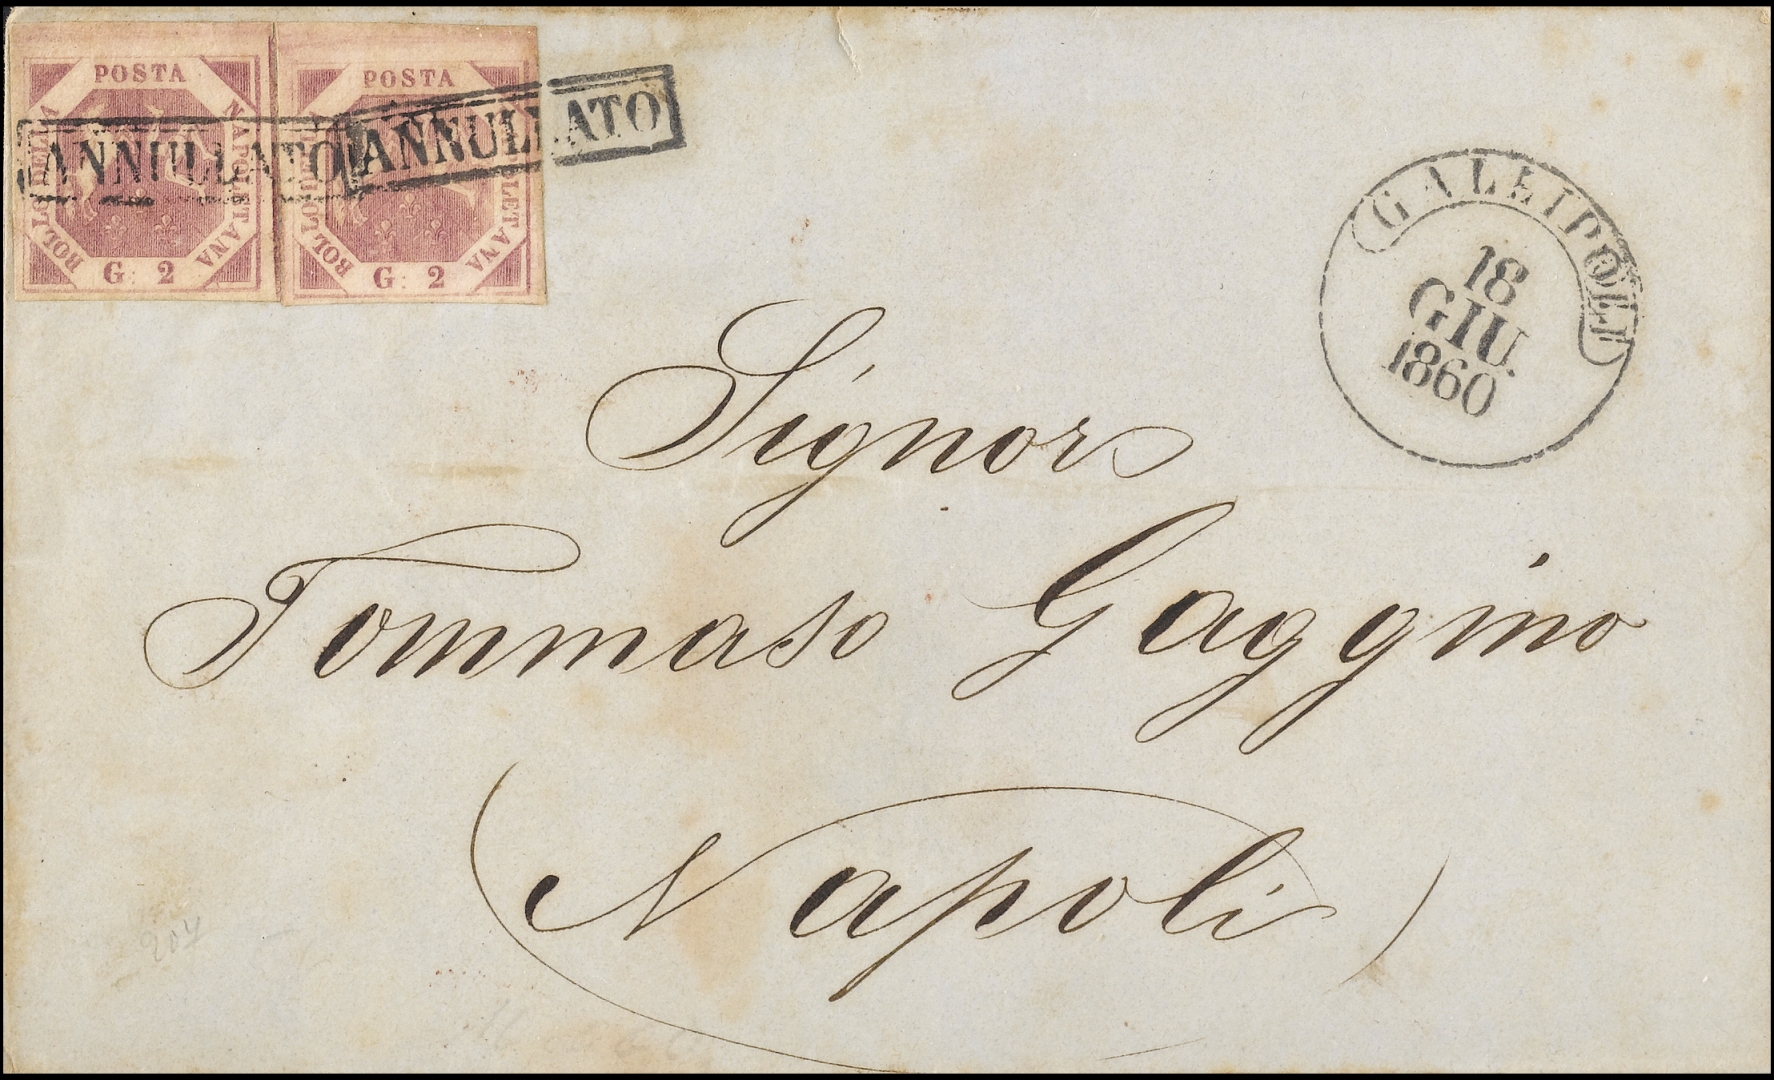 POSTA
BOLLO DELLA
NAPOLETANA
G. 2
POSTA
BOLLO
NAPOLETANA
G. 2
ANNULLATO
ANNULLATO
GALLIPOLI
18
GIU.
1860
Signor
Tommaso Gaggino
Napoli
207